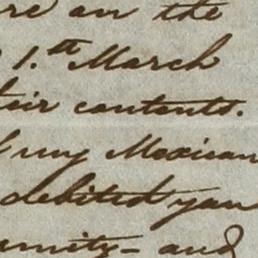 re on the
1.st March
their contents.
my Mexican
debited you
amity - and